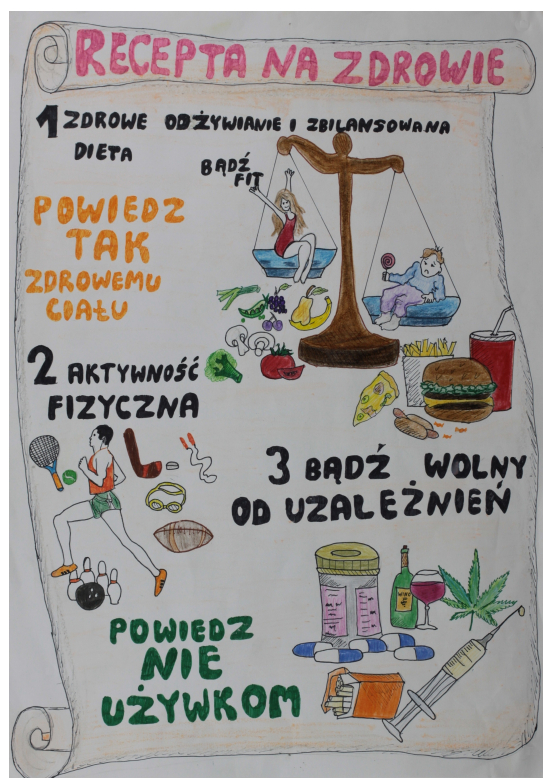 RECEPTA NA ZDROWIE
1 ZDROWE ODŻYWIANIE I ZBILANSOWANA
DIETA
BĄDŹ
FIT
POWIEDZ
TAK
ZDROWEMU
CIAŁU
2 AKTYWNOŚĆ
FIZYCZNA
3 BĄDŹ WOLNY
OD UZALEŻNIEŃ
POWIEDZ
NIE
UŻYWKOM